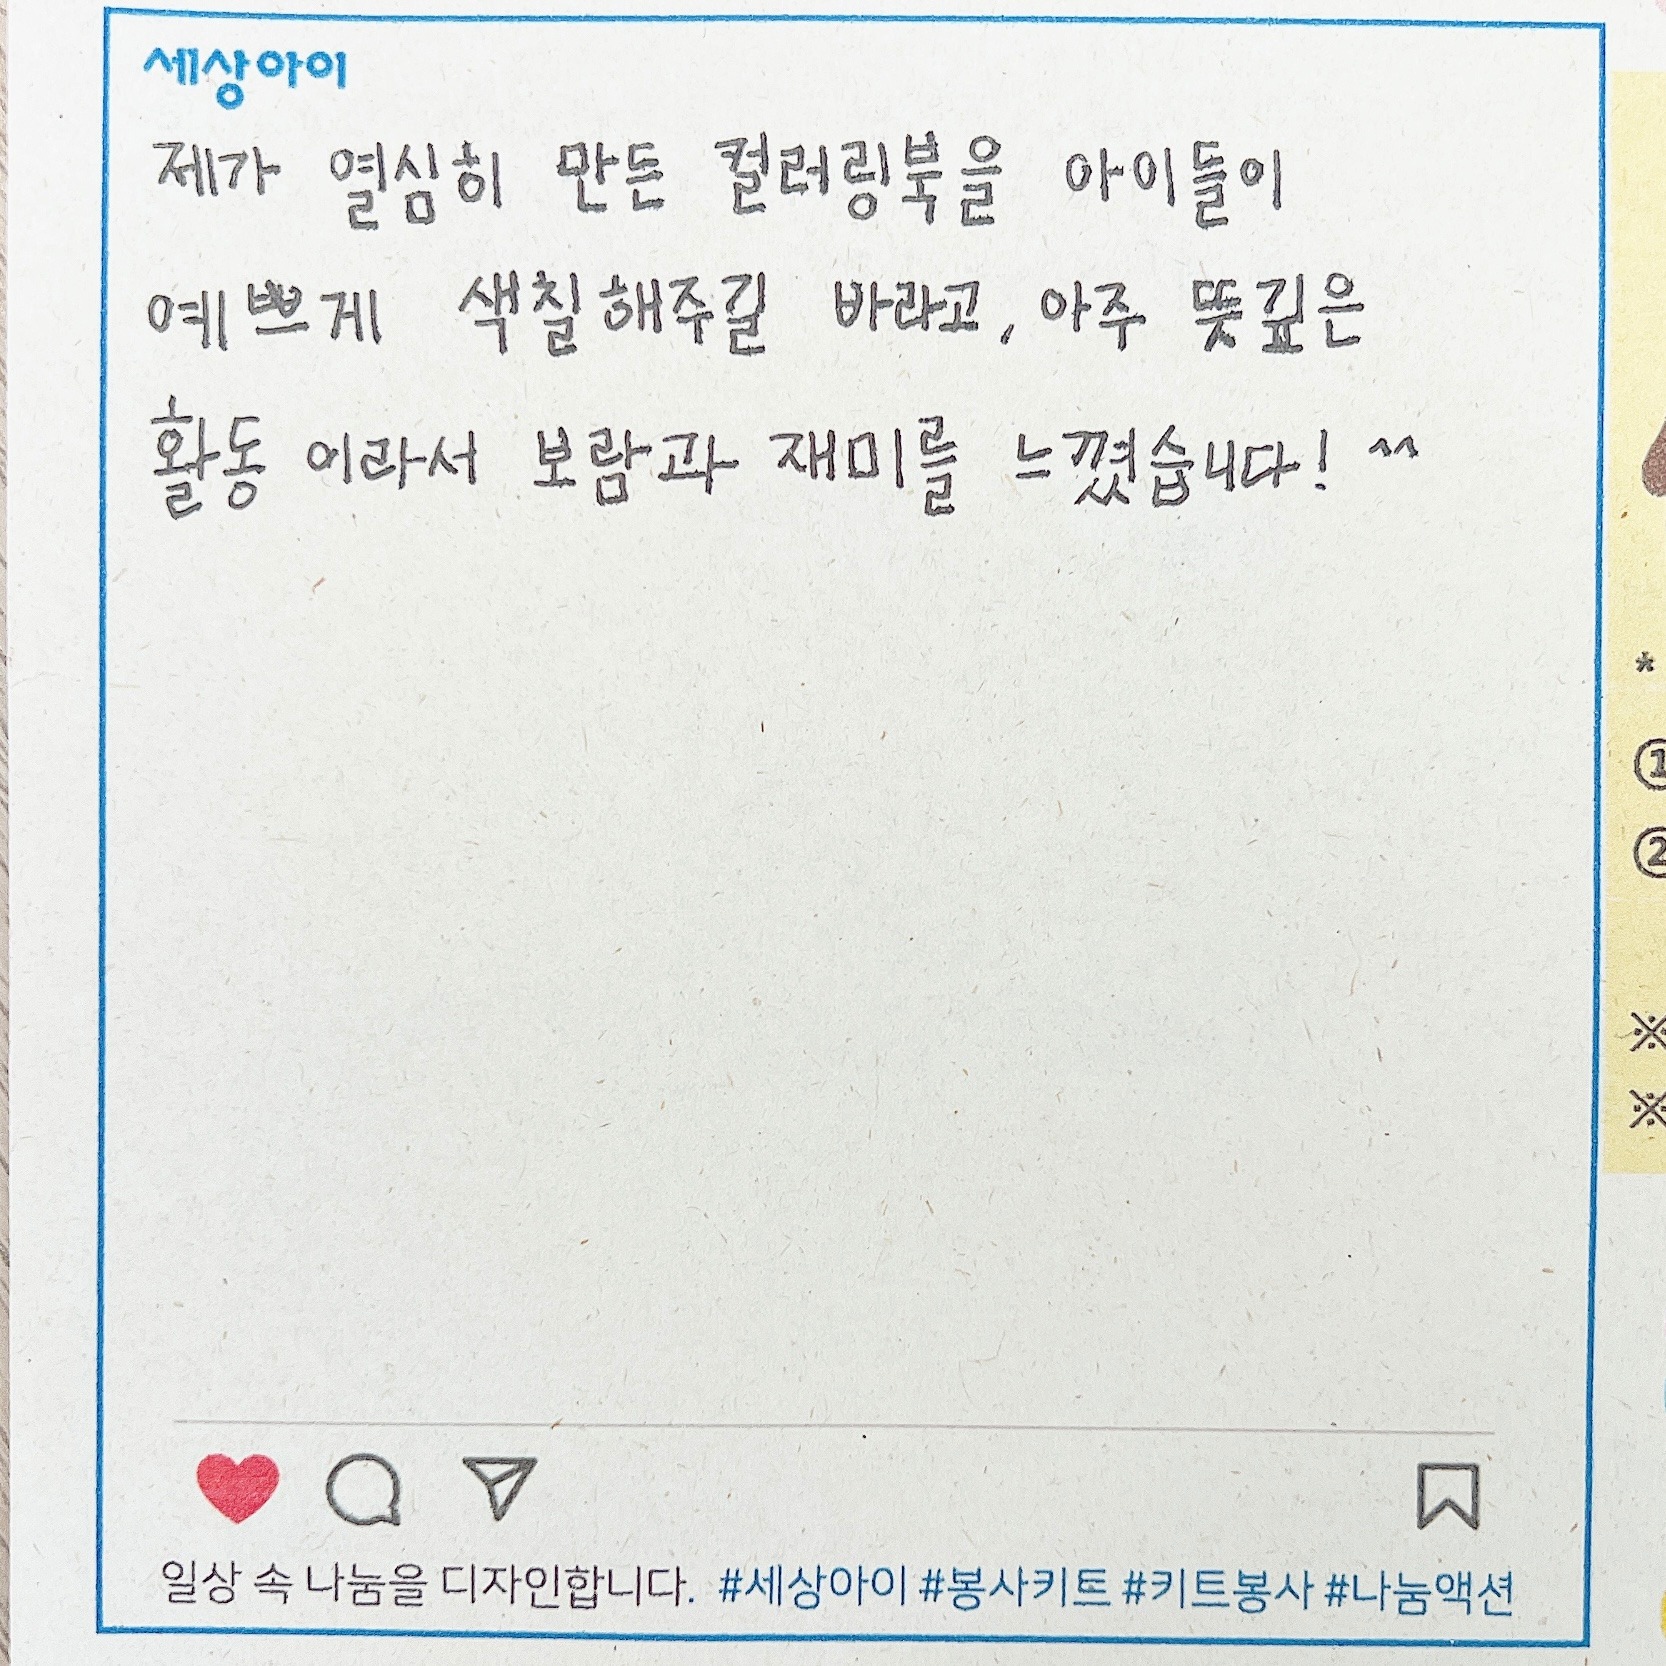 세상아이
제가 열심히 만든 컬러링북을 아이들이
예쁘게 색칠해주길 바라고, 아주 뜻깊은
활동 이라서 보람과 재미를 느꼈습니다! ^^
*
①
②
※
※
일상 속 나눔을 디자인합니다. #세상아이 #봉사키트 #키트봉사 #나눔액션